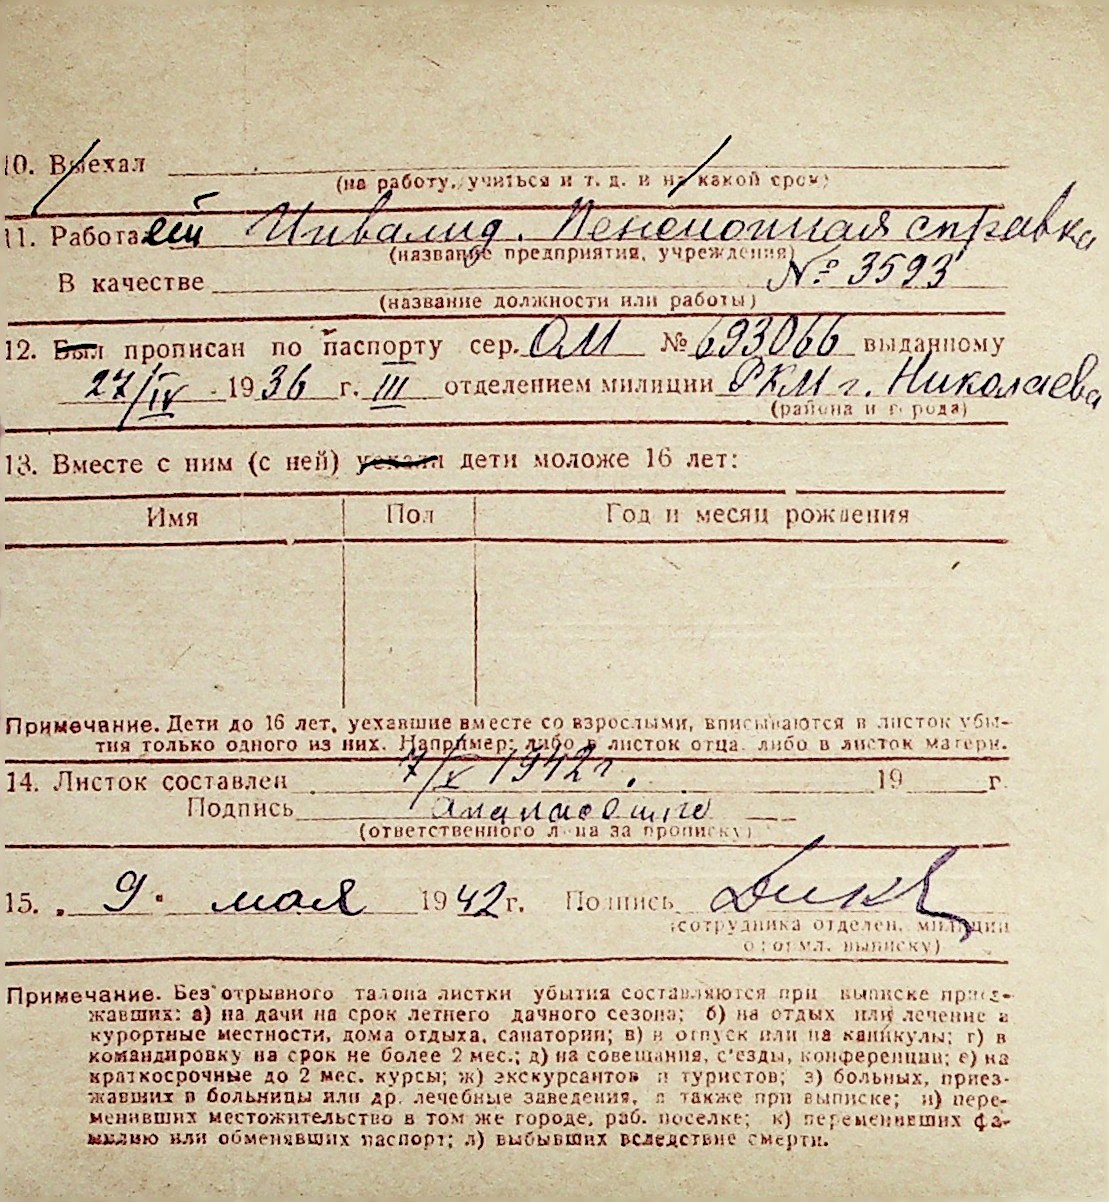 10. Выехал
(на работу, учиться и т. д. и на какой срок)
11. Работает Инвалид. Пенсионная справка
(название предприятия, учреждения)
№ 3593
В качестве
(название должности или работы)
12. Был прописан по паспорту сер. ОМ № 693066 выданному
27/IV 1936 г. III отделением милиции РКМ г. Николаева
(района и города)
13. Вместе с ним (с ней) уехали дети моложе 16 лет:
Имя Пол Год и месяц рождения
Примечание. Дети до 16 лет, уехавшие вместе со взрослыми, вписываются в листок убы-
тия только одного из них. Например: либо в листок отца, либо в листок матери.
14. Листок составлен 7/V 1942 г. 19 г.
Подпись
(ответственного лица за прописку)
15. 9 мая 1942 г. Подпись
(сотрудника отделен. милиции
о выписку)
Примечание. Без отрывного талона листки убытия составляются при выписке приез-
жавших: а) на дачи на срок летнего дачного сезона; б) на отдых или лечение в
курортные местности, дома отдыха, санатории; в) в отпуск или на каникулы; г) в
командировку на срок не более 2 мес.; д) на совещания, с'езды, конференции; е) на
краткосрочные до 2 мес. курсы; ж) экскурсантов и туристов; з) больных, приез-
жавших в больницы или др. лечебные заведения, а также при выписке; и) пере-
менивших местожительство в том же городе, раб. поселке; к) переменивших фа-
милию или обменявших паспорт; л) выбывших вследствие смерти.